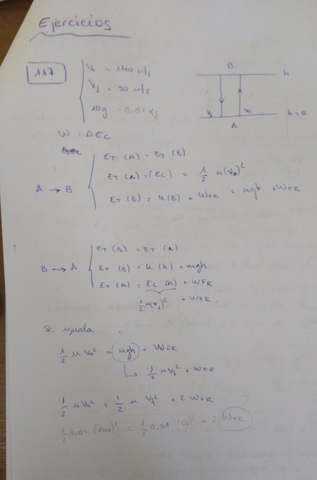 Ejercicios
117
V₀ = 140 m/s
V₁ = 50 m/s
10g = 0.01 kg
B
h
V₁
h=0
A
W = ΔEc
A → B
ET (A) = ET (B)
ET (A) = (EC) = 1/2 m(V₀)²
ET (B) = U(B) + WFR = mgh + WFR
B → A
ET (B) = ET (A)
ET (B) = U(h) = mgh
ET (A) = EC (A) + WFR
1/2 m(V₁)² + WFR.
Se iguala ...
1/2 m V₀² = mgh + WFR
↳ 1/2 m V₁² + WFR
1/2 m V₀² = 1/2 m V₁² + 2 WFR
1/2 0.01 (140)² = 1/2 0.01 (50)² + 2 WFR